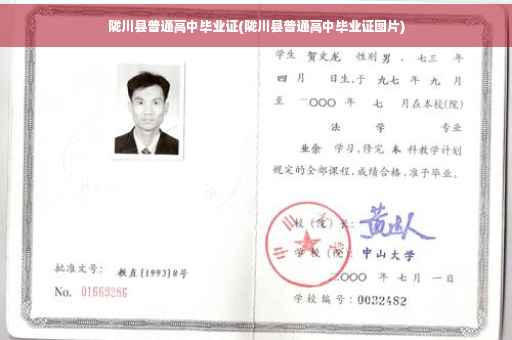 陇川县普通高中毕业证(陇川县普通高中毕业证图片)
学生 贺文龙 性别 男 、七三 年
四 月 日生,于 九七 年 九 月
至 二〇〇〇 年 七 月在本校(院)
法 学 专业
业余 学习,修完 本 科教学计划
规定的全部课程,成绩合格,准予毕业。
校 (院) 长:
学 校 (院): 中山大学
二〇〇〇 年 七 月 一 日
批准文号: 教直(1993)8号
No. 01669286
学校编号: 0032482